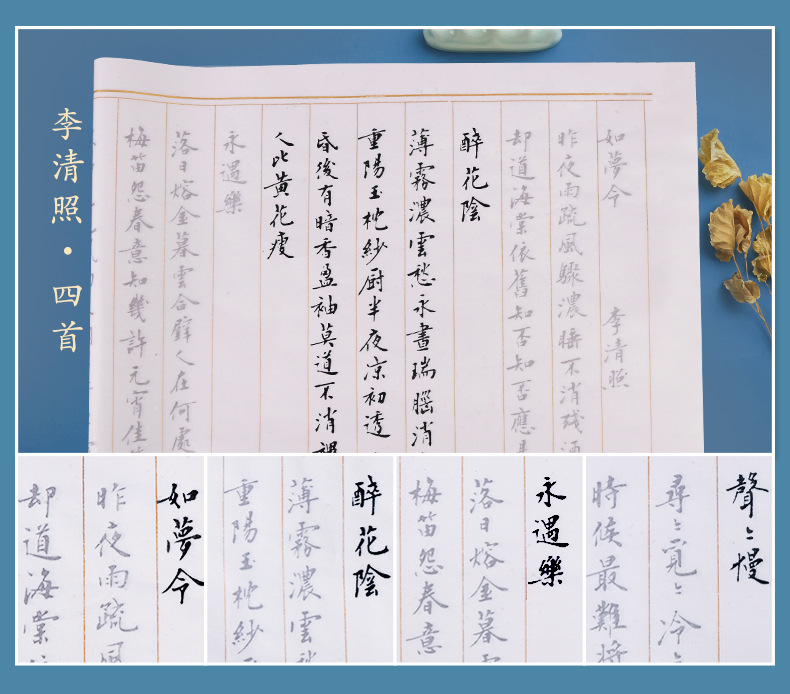 李清照·四首
如夢令 李清照
昨夜雨疏風驟濃睡不消殘酒
却道海棠依舊知否知否應是
醉花陰
薄霧濃雲愁永晝瑞腦消
重陽玉枕紗厨半夜凉初透
昏後有暗香盈袖莫道不消
人比黃花瘦
永遇樂
落日熔金暮雲合璧人在何處
梅笛怨春意知幾許元宵佳
如夢令
昨夜雨疏風
却道海棠
醉花陰
薄霧濃雲愁
重陽玉枕紗
永遇樂
落日熔金暮
梅笛怨春意
聲〻慢
尋〻覓〻冷〻
時候最難將